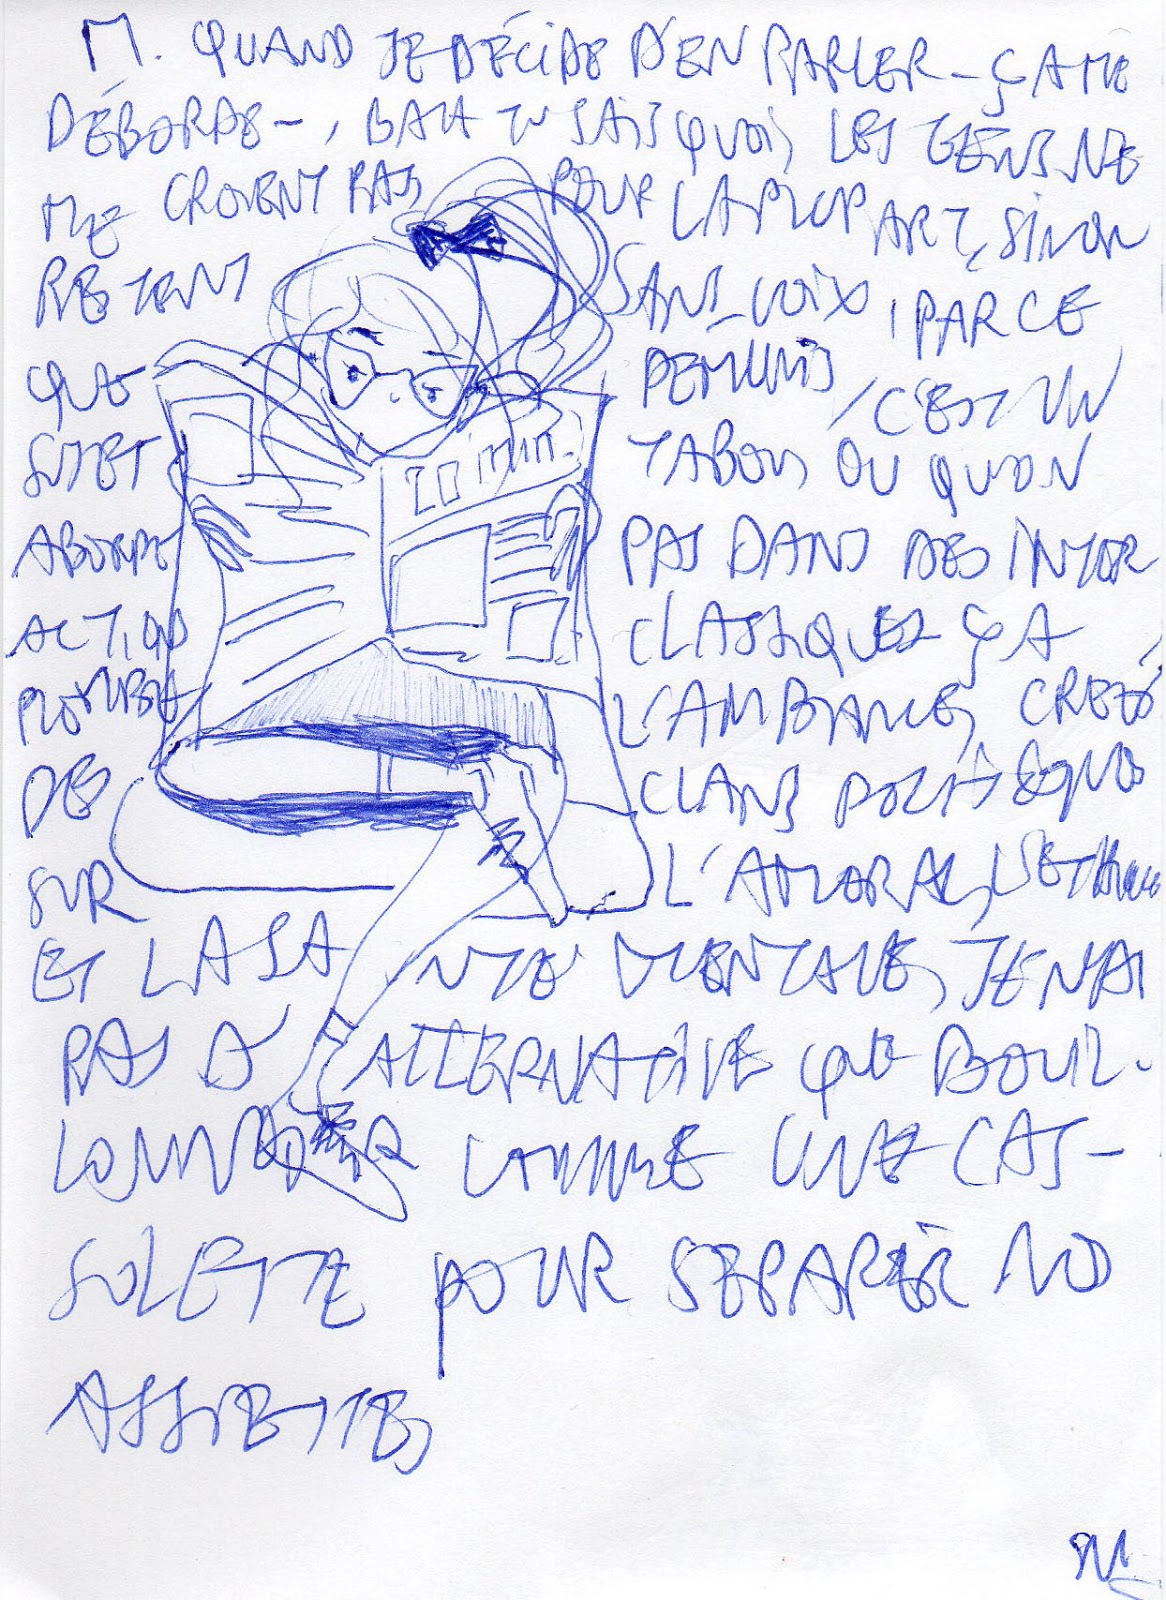 M. QUAND JE DÉCIDE D'EN PARLER - ÇA ME
DÉBORDE -, BAH TU SAIS QUOI, LES GENS NE
ME CROIENT PAS POUR LA PLUPART, SINON
RESTENT SANS VOIX, PARCE
QUE DEMUNIS, C'EST UN
SUJET TABOU OU QU'ON
ABORDE PAS DANS DES INTER
ACTIONS CLASSIQUES ÇA
PLOMBE L'AMBIANCE, CRÉE
DES CLANS POLITIQUES
SUR L'AMORAL, L'ETHIQUE
ET LA SANTÉ MENTALE, JE N'AI
PAS D'ALTERNATIVE QUE BOUIL-
LONNER COMME UNE CAS-
SOLETTE POUR SEPARER NO
ASSIETTES
20 min.